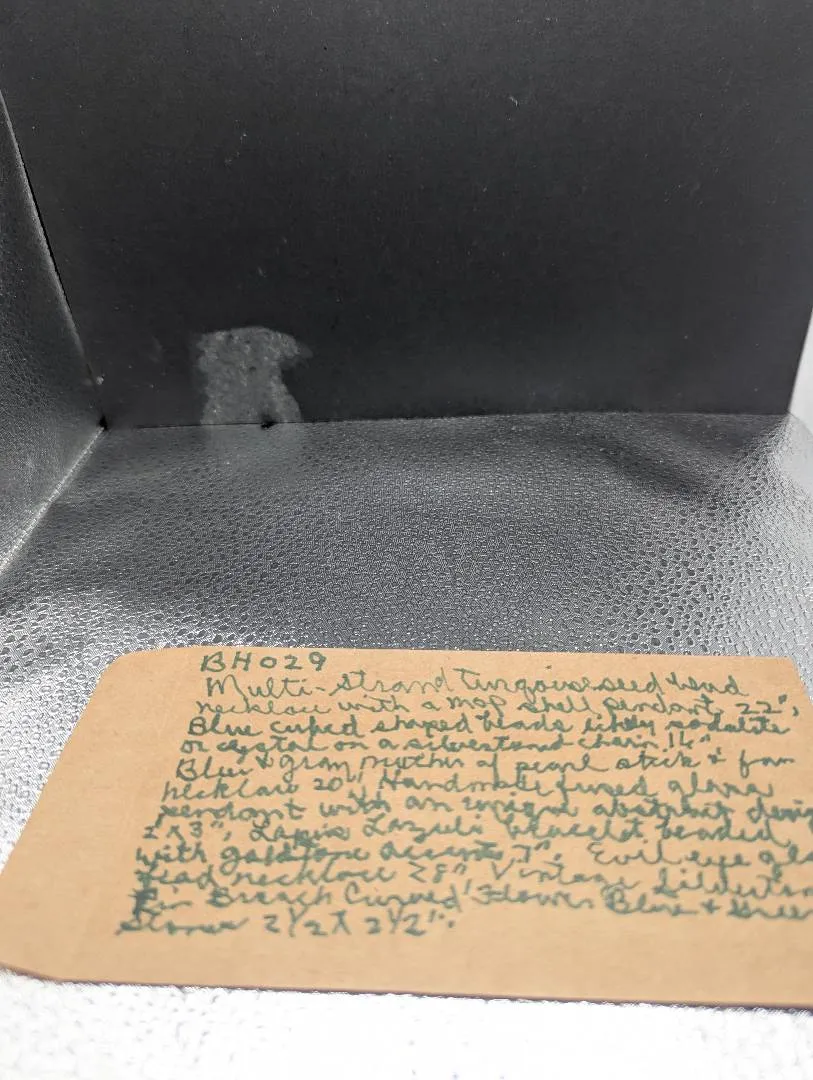 BH029
Multi-strand turquoise seed bead
necklace with a mop shell pendant 22",
Blue cubed shaped beads likely sodalite
or crystal on a silvertoned chain 16"
Blue & gray mother of pearl stick &
necklace 20", Handmade fused glass
pendant with an unique abstract
2"x3", Lapis Lazuli bracelet beaded
with goldtone accents 7", Evil eye
bead necklace 28" Vintage
Pin Broach Curved Flower Blue &
Stones 2 1/2 x 2 1/2".